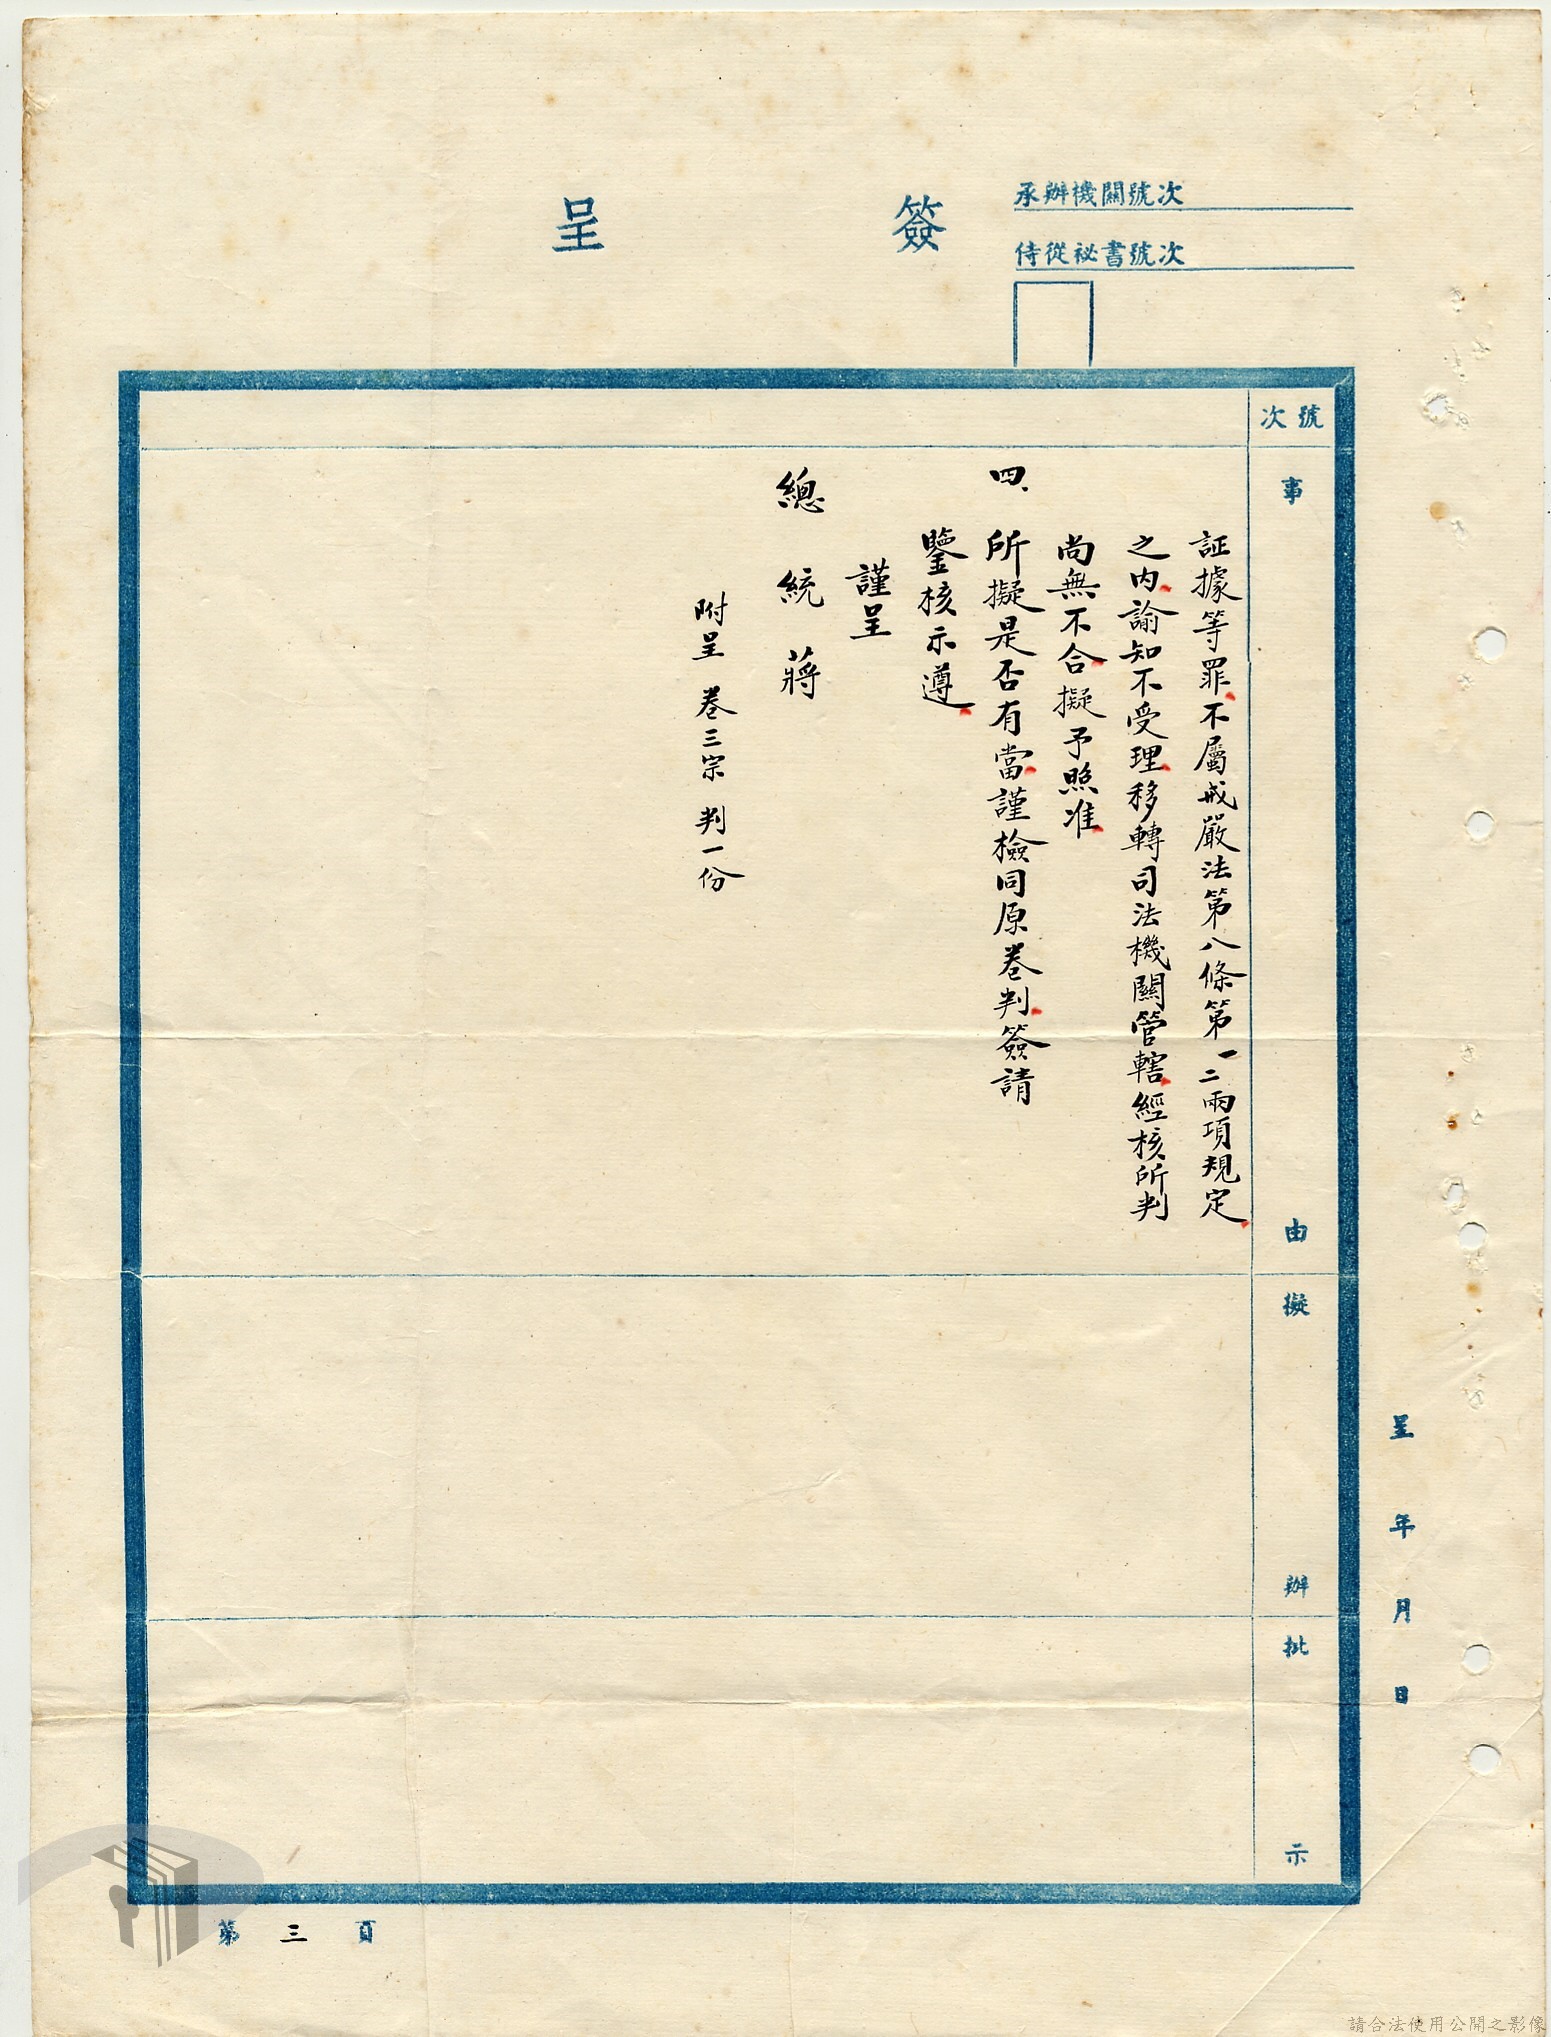 簽呈
承辦機關號次
侍從祕書號次
號次
事由
擬辦
批示
証據等罪不屬戒嚴法第八條第一二兩項規定
之內諭知不受理移轉司法機關管轄經核所判
尚無不合擬予照准
四、所擬是否有當謹檢同原卷判簽請
鑒核示遵
謹呈
總統蔣
附呈 卷三宗 判一份
呈 年 月 日
第三頁
請合法使用公開之影像